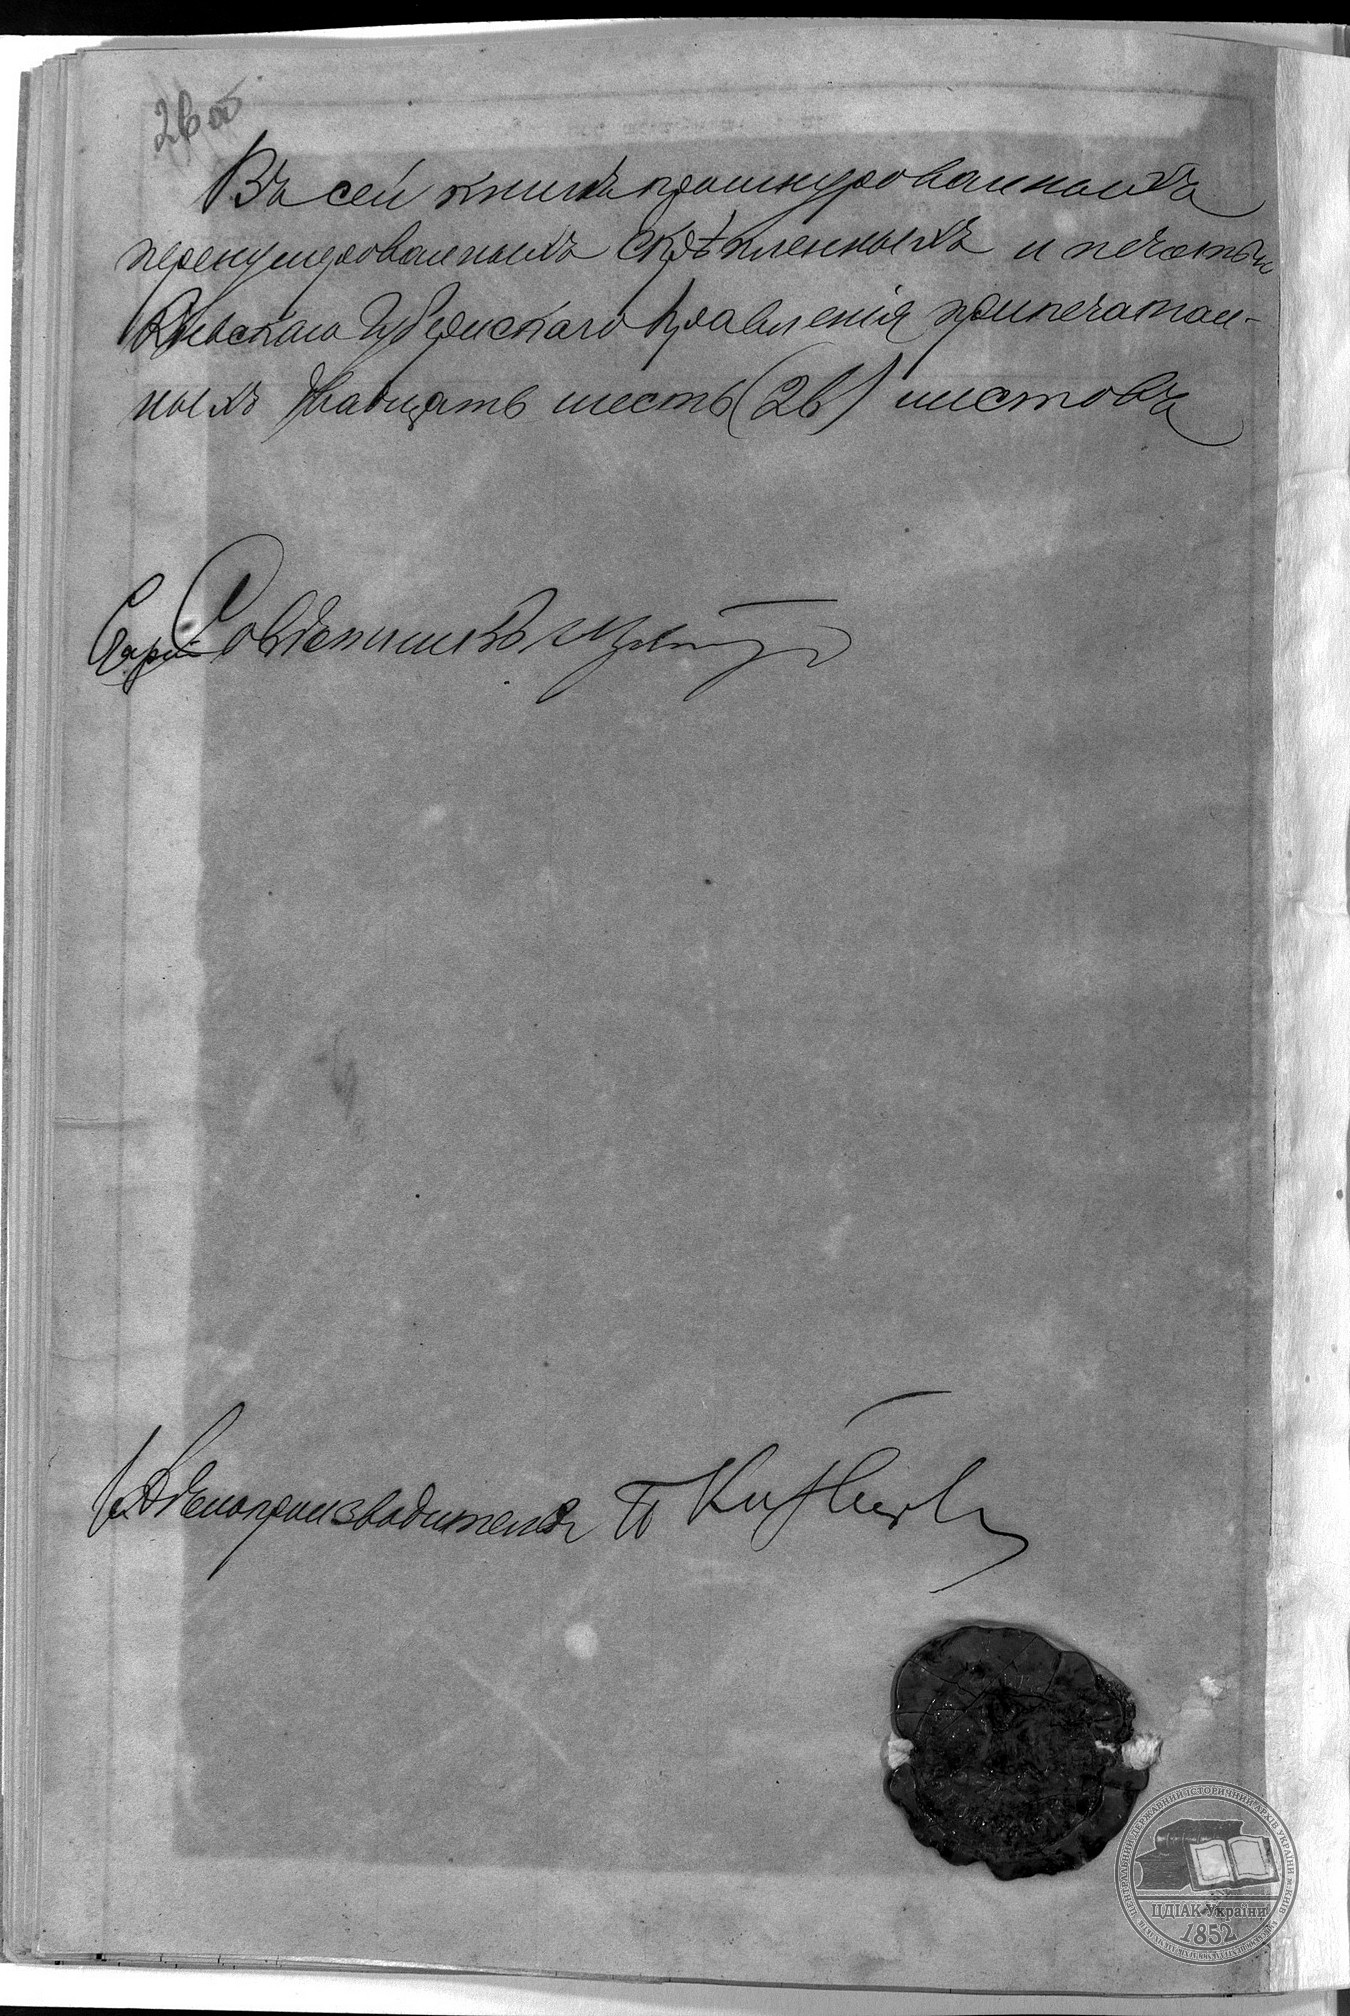 26 об
Въ сей книгѣ прошнурованныхъ
перенумерованныхъ скрѣпленныхъ и печатью
Кіевскаго Губернскаго Правленія припечатан-
ныхъ двадцать шесть (26) листовъ
Совѣтникъ
Дѣлопроизводителя
ЦЕНТРАЛЬНИЙ ДЕРЖАВНИЙ ІСТОРИЧНИЙ АРХІВ УКРАЇНИ м. КИЇВ
ЦДІАК України
1852